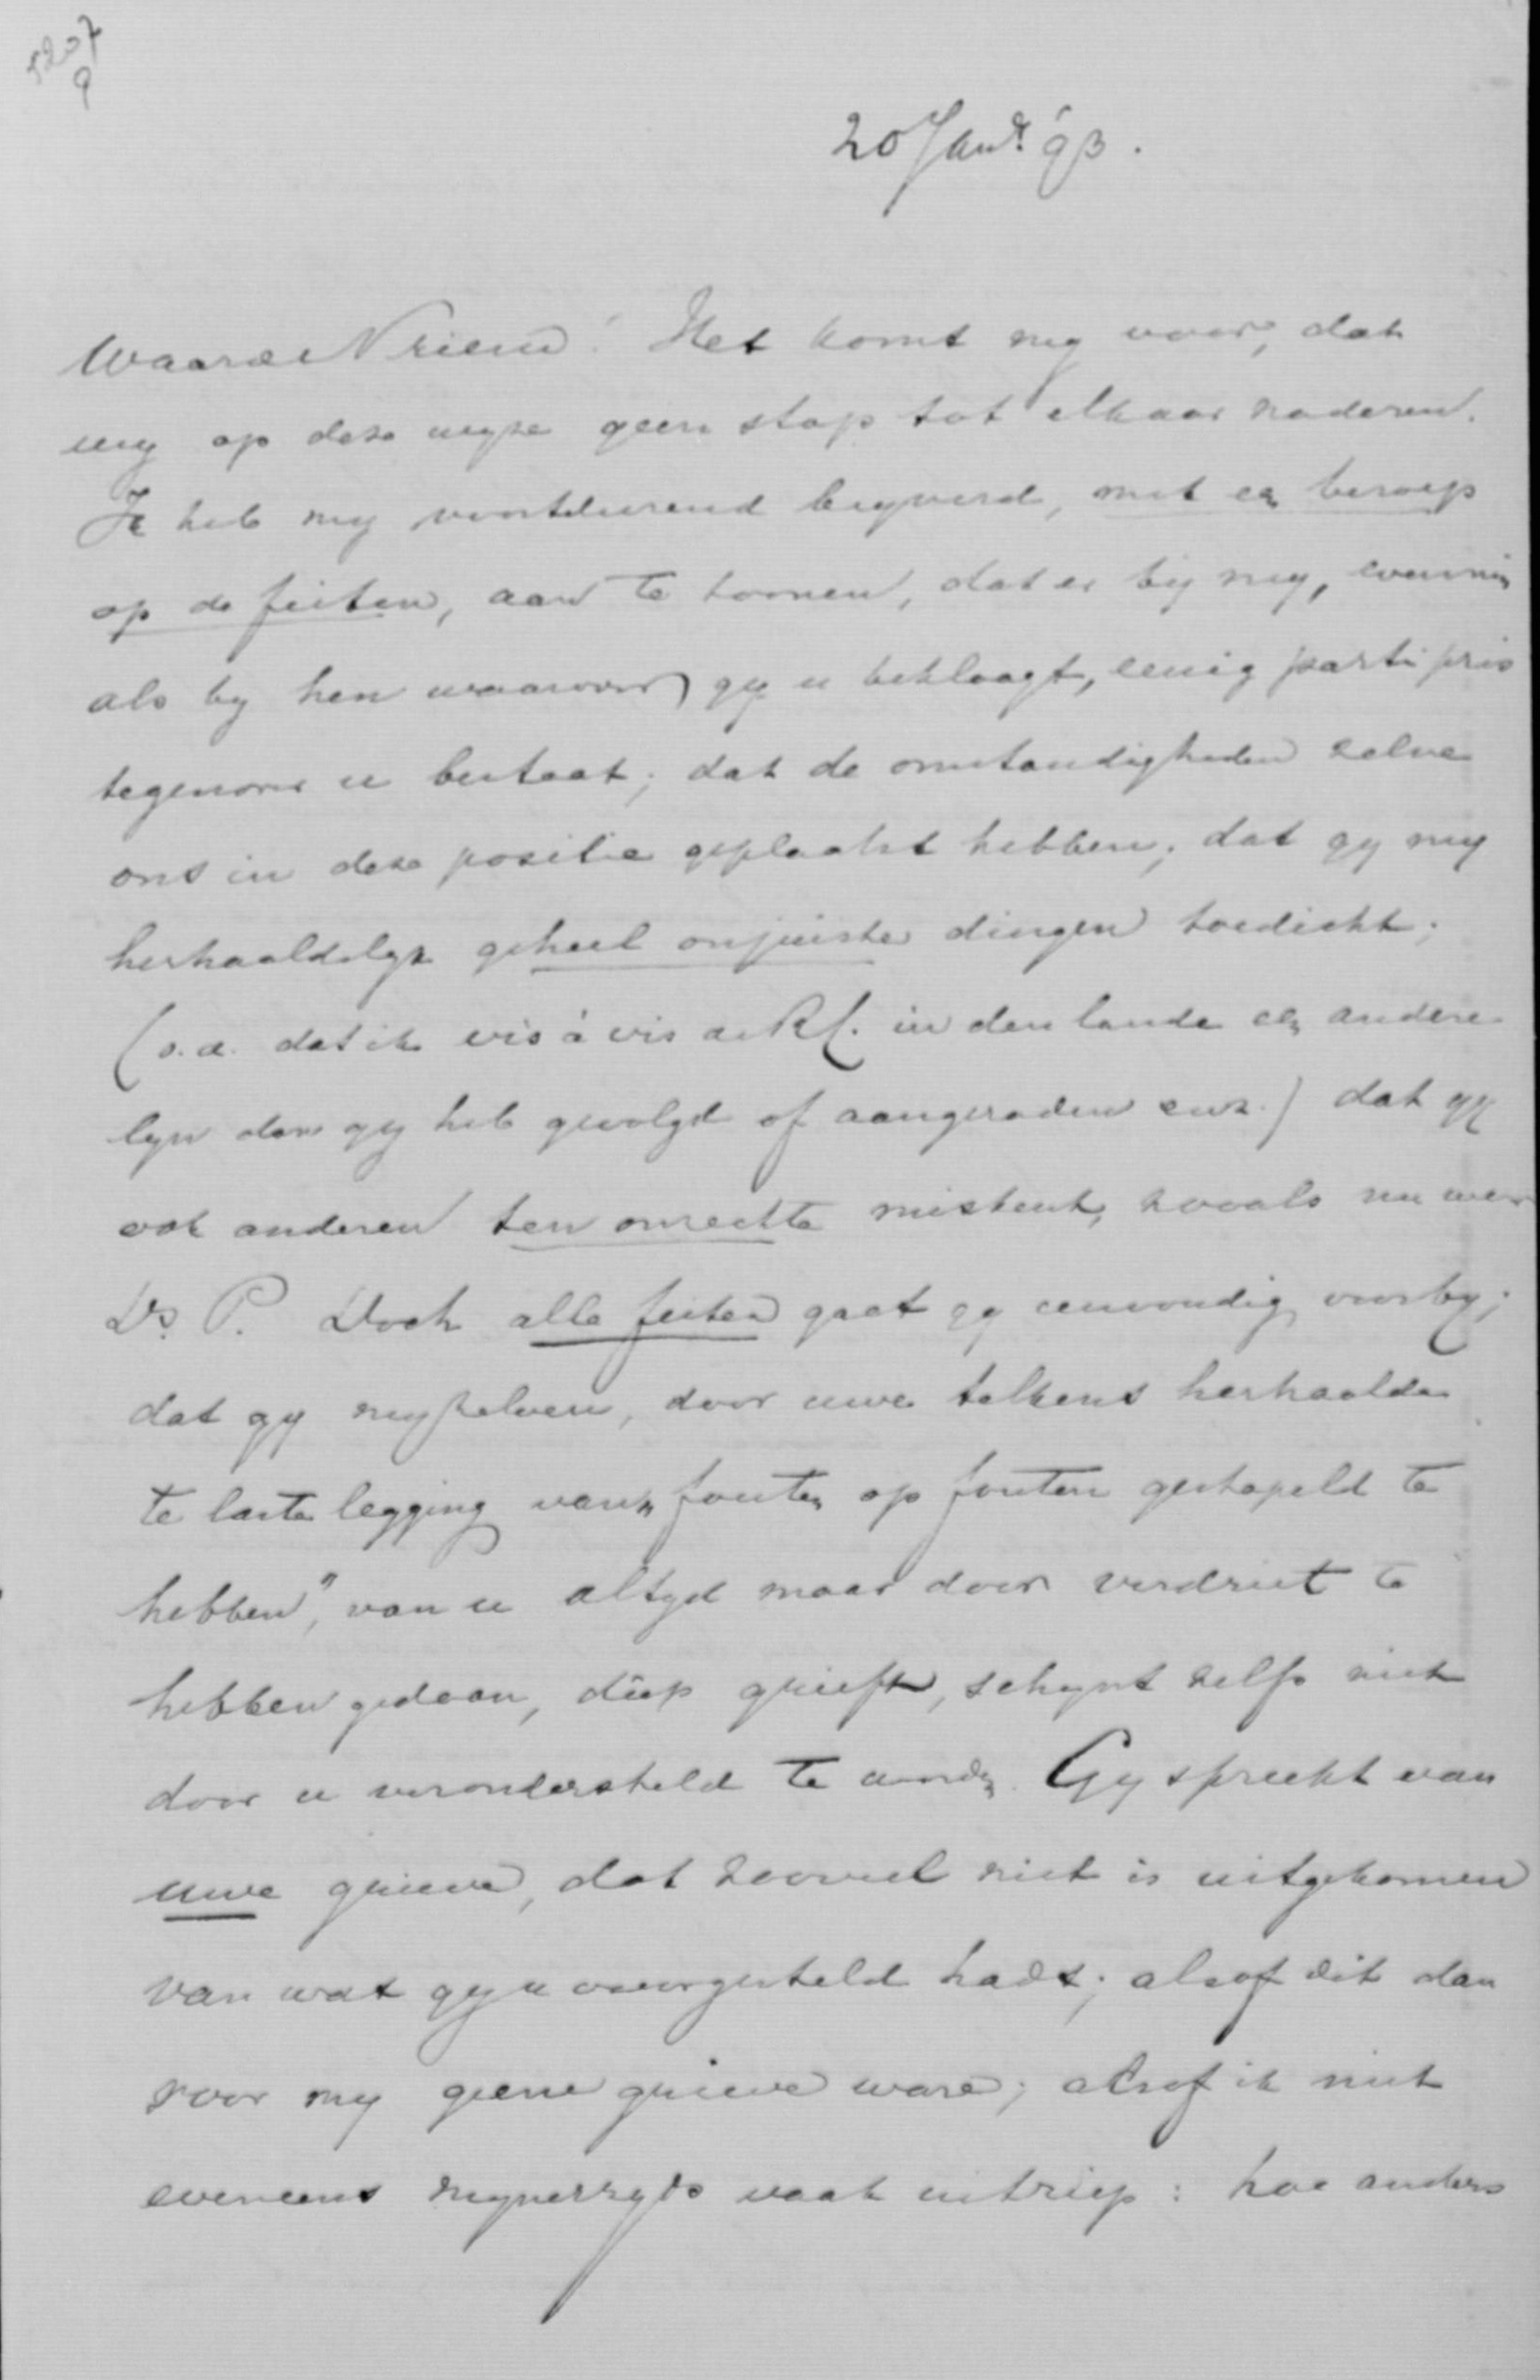 5207
9
20 Jan.r '93.
Waarde Vriend! Het komt my voor, dat
wy op deze wyze geen stap tot elkaar naderen.
Ik heb my voortdurend beyverd, met een beroep
op de feiten, aan te toonen, dat er by my, evenmin
als by hen waarover gy u beklaagt, eenig parti pris
tegenover u bestaat; dat de omstandigheden zelve
ons in deze positie geplaatst hebben; dat gy my
herhaaldelyk geheel onjuiste dingen toedicht;
(o.a. dat ik vis à vis de Kf. in den lande een andere
lyn dan gy heb gevolgd of aangeraden enz.) dat gy
ook anderen ten onrechte miskent, zooals nu weer
Ds. P. Doch alle feiten gaat gy eenvoudig voorby;
dat gy my zelven, door uwe telkens herhaalde
te laste legging van „fouten op fouten gestapeld te
hebben", van u altyd maar door verdriet te
hebben gedaan, diep grieft, schynt zelfs niet
door u verondersteld te worden. Gy spreekt van
uwe grieve, dat zooveel niet is uitgekomen
van wat gy u voorgesteld hadt; alsof dit dan
voor my geene grieve ware; alsof ik niet
eveneens mynerzyds vaak uitriep: hoe anders